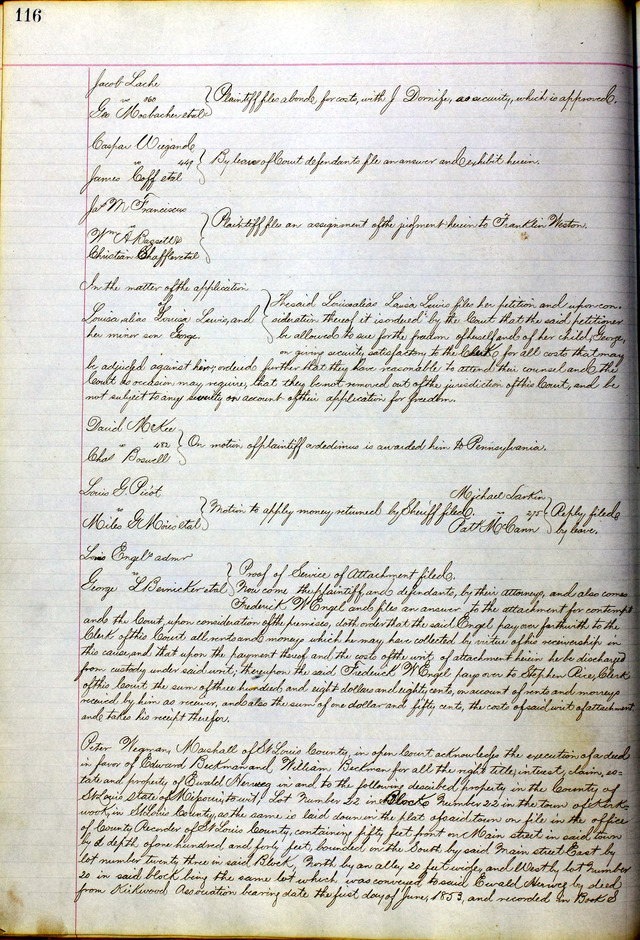 116
Jacob Lache
vs 860
Geo Mosbacher etal
Plaintiff files a bond, for costs, with J Dornife, as security, which is approved.
Caspar Wiegand
vs 449
James Goff etal
By leave of Court defendants file an answer and exhibit herein.
Jas M Franciscus
vs
Wm A
Christian etal
Plaintiff files an assignment of the judgment herein to Franklin Weston.
In the matter of the application
of
Louisa, alias Louisa Lewis, and
her minor son George.
The said Louisa alias Laura Lewis files her petition and upon con-
sideration thereof it is ordered by the Court that the said petitioner
be allowed to sue for the freedom of herself and of her child, George,
on giving security satisfactory to the Clerk for all costs that may
be adjudged against him; ordered further that they have reasonable to attend their counsel and the
Court as occasion may require, that they be not removed out of the jurisdiction of this Court, and be
not subject to any severity on account of their application for freedom.
David McKee
vs 452
Chas Boswell
On motion of plaintiff a dedimus is awarded him to Pennsylvania.
Louis G. Picot
vs
Miles G Moies etal
Motion to apply money returned by Sheriff filed.
Michael Larkin
vs 275
Patk McCann
Reply filed
by leave.
Louis Engel admr
vs
George L Bernicker etal
Proof of Service of Attachment filed.
Now come the plaintiff and defendants, by their attorneys, and also comes
Frederick W Engel and files an answer to the attachment for contempt
and the Court upon consideration of the premises, doth order that the said Engel pay over forthwith to the
Clerk of this Court all rents and moneys which he may have collected by virtue of his receivership in
this cause, and that upon the payment thereof and the costs of the writ of attachment herein he be discharged
from custody under said writ; thereupon the said Frederick W Engel pays over to Stephen Rice, Clerk
of this Court the sum of three hundred and eight dollars and eighty cents, on account of rents and moneys
received by him as receiver, and also the sum of one dollar and fifty cents, the costs of said writ of attachment
and takes his receipt therefor.
Peter Wegman, Marshall of St Louis County, in open Court acknowledges the execution of a deed
in favor of Edward Beckman and William Beckman for all the right, title, interest, claim, es-
tate and property of Ewald Herweg in and to the following described property in the County of
St Louis, State of Missouri, to wit: Lot Number 22 in Block Number 22 in the town of Kirk-
wood, in St Louis County, as the same is laid down in the plat of said town on file in the office
of County Recorder of St Louis County, containing fifty feet front on Main street in said town
by a depth of one hundred and forty feet, bounded on the South by said Main street East by
lot number twenty three in said Block North by an alley 20 feet wide, and West by lot number
20 in said block being the same lot which was conveyed to said Ewald Herweg by deed
from Kirkwood Association bearing date the first day of June, 1853, and recorded in Book S